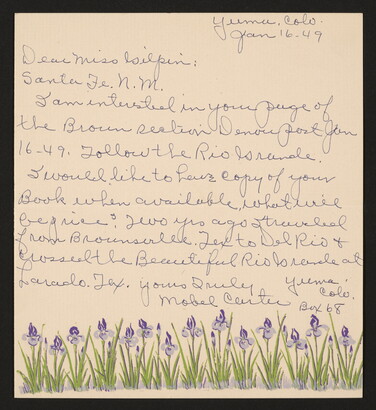 Yuma, Colo.
Jan 16-49
Dear Miss Gilpin:
Santa Fe. N.M.
I am interested in your page of
the Brown section Denver post Jan
16-49. Follow the Rio Grande.
I would like to have copy of your
Book when available, what will
be price? Two yrs ago I traveled
from Brownsville. Tex to Del Rio &
Crossed the Beautiful Rio Grande at
Larado. Tex. yours Truly
Mabel Center
Yuma.
Colo.
Box 68